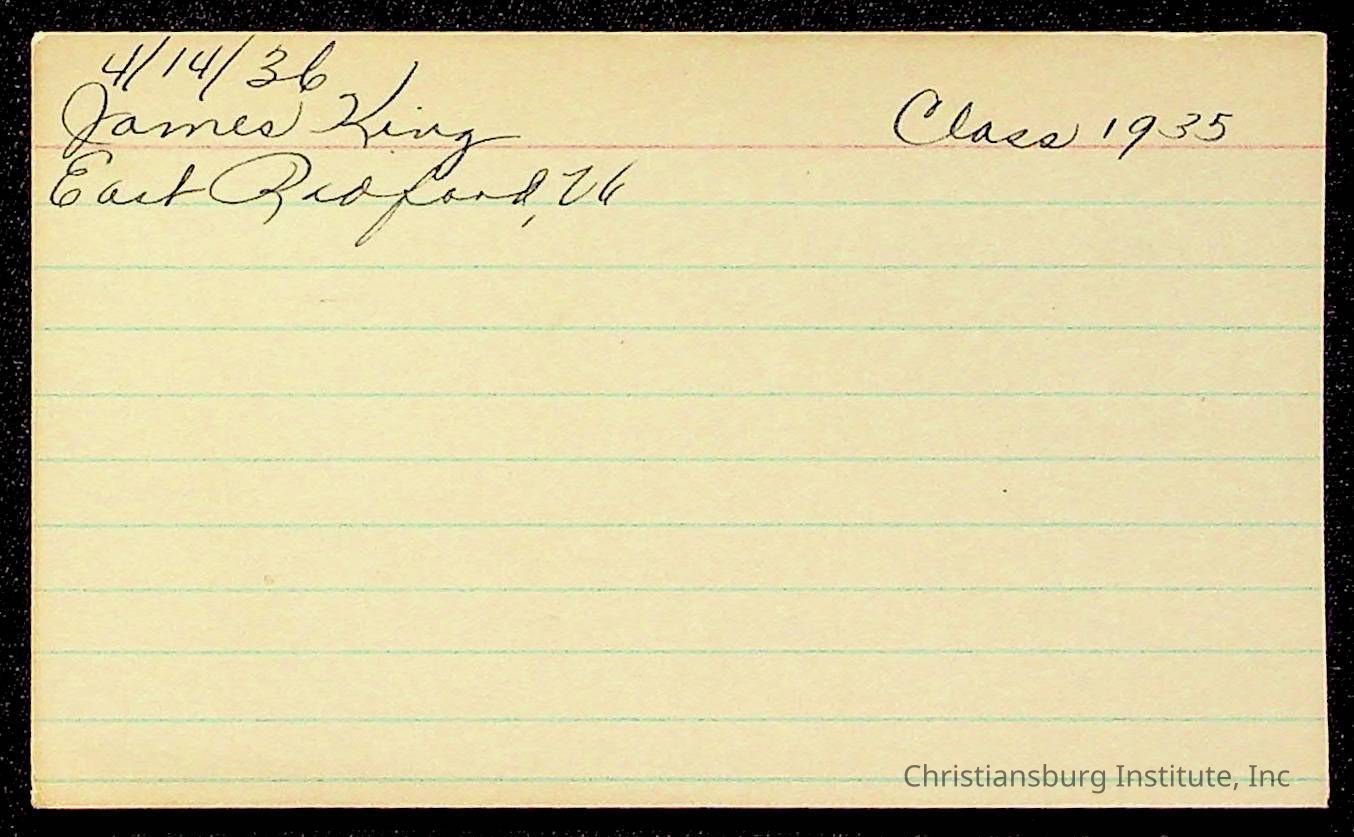 4/14/36
James King Class 1935
East Radford, Va
Christiansburg Institute, Inc